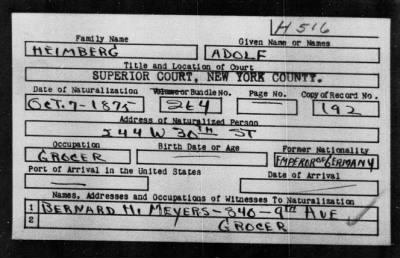 H 516
Family Name Given Name or Names
HEIMBERG ADOLF
Title and Location of Court
SUPERIOR COURT, NEW YORK COUNTY.
Date of Naturalization Volume or Bundle No. Page No. Copy of Record No.
OCT. 7-1875 264 — 192
Address of Naturalized Person
544 W 30TH ST
Occupation Birth Date or Age Former Nationality
GROCER — EMPEROR OF GERMANY
Port of Arrival in the United States Date of Arrival
— —
Names, Addresses and Occupations of Witnesses To Naturalization
1 BERNARD H. MEYERS-340-9TH AVE
2 GROCER